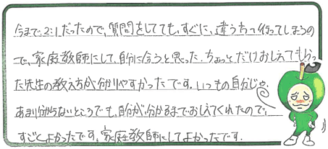 今まで2:1だったので、質問をしてても、すぐに、違うちへ行ってしまうの
で、家庭教師にして、自分に合うと思った。ちょっとだけおしえてもらっ
た先生の教え方が分かりやすかったです。いつも自分じゃ、
あまり分からないところでも、自分が、分かるまでおしえてくれたので、
すごくよかったです。家庭教師にしてよかったです。